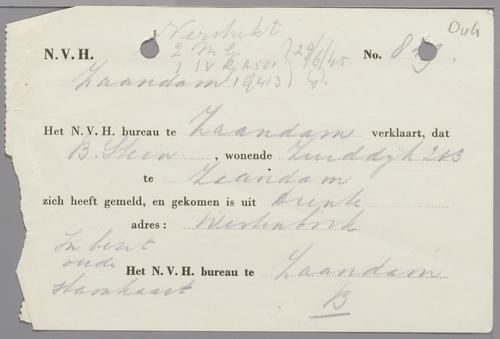 Verstrekt
Duh
N.V.H. 2 M G. 29/6/45 No. 829.
1 V R A 501
Zaandam 1 G 413
Het N. V. H. bureau te Zaandam verklaart, dat
B. Stein, wonende Zuiddijk 203
te Zaandam
zich heeft gemeld, en gekomen is uit Drente
adres: Westerbork
In bezit
oude
Stamkaart
Het N. V. H. bureau te Zaandam
B